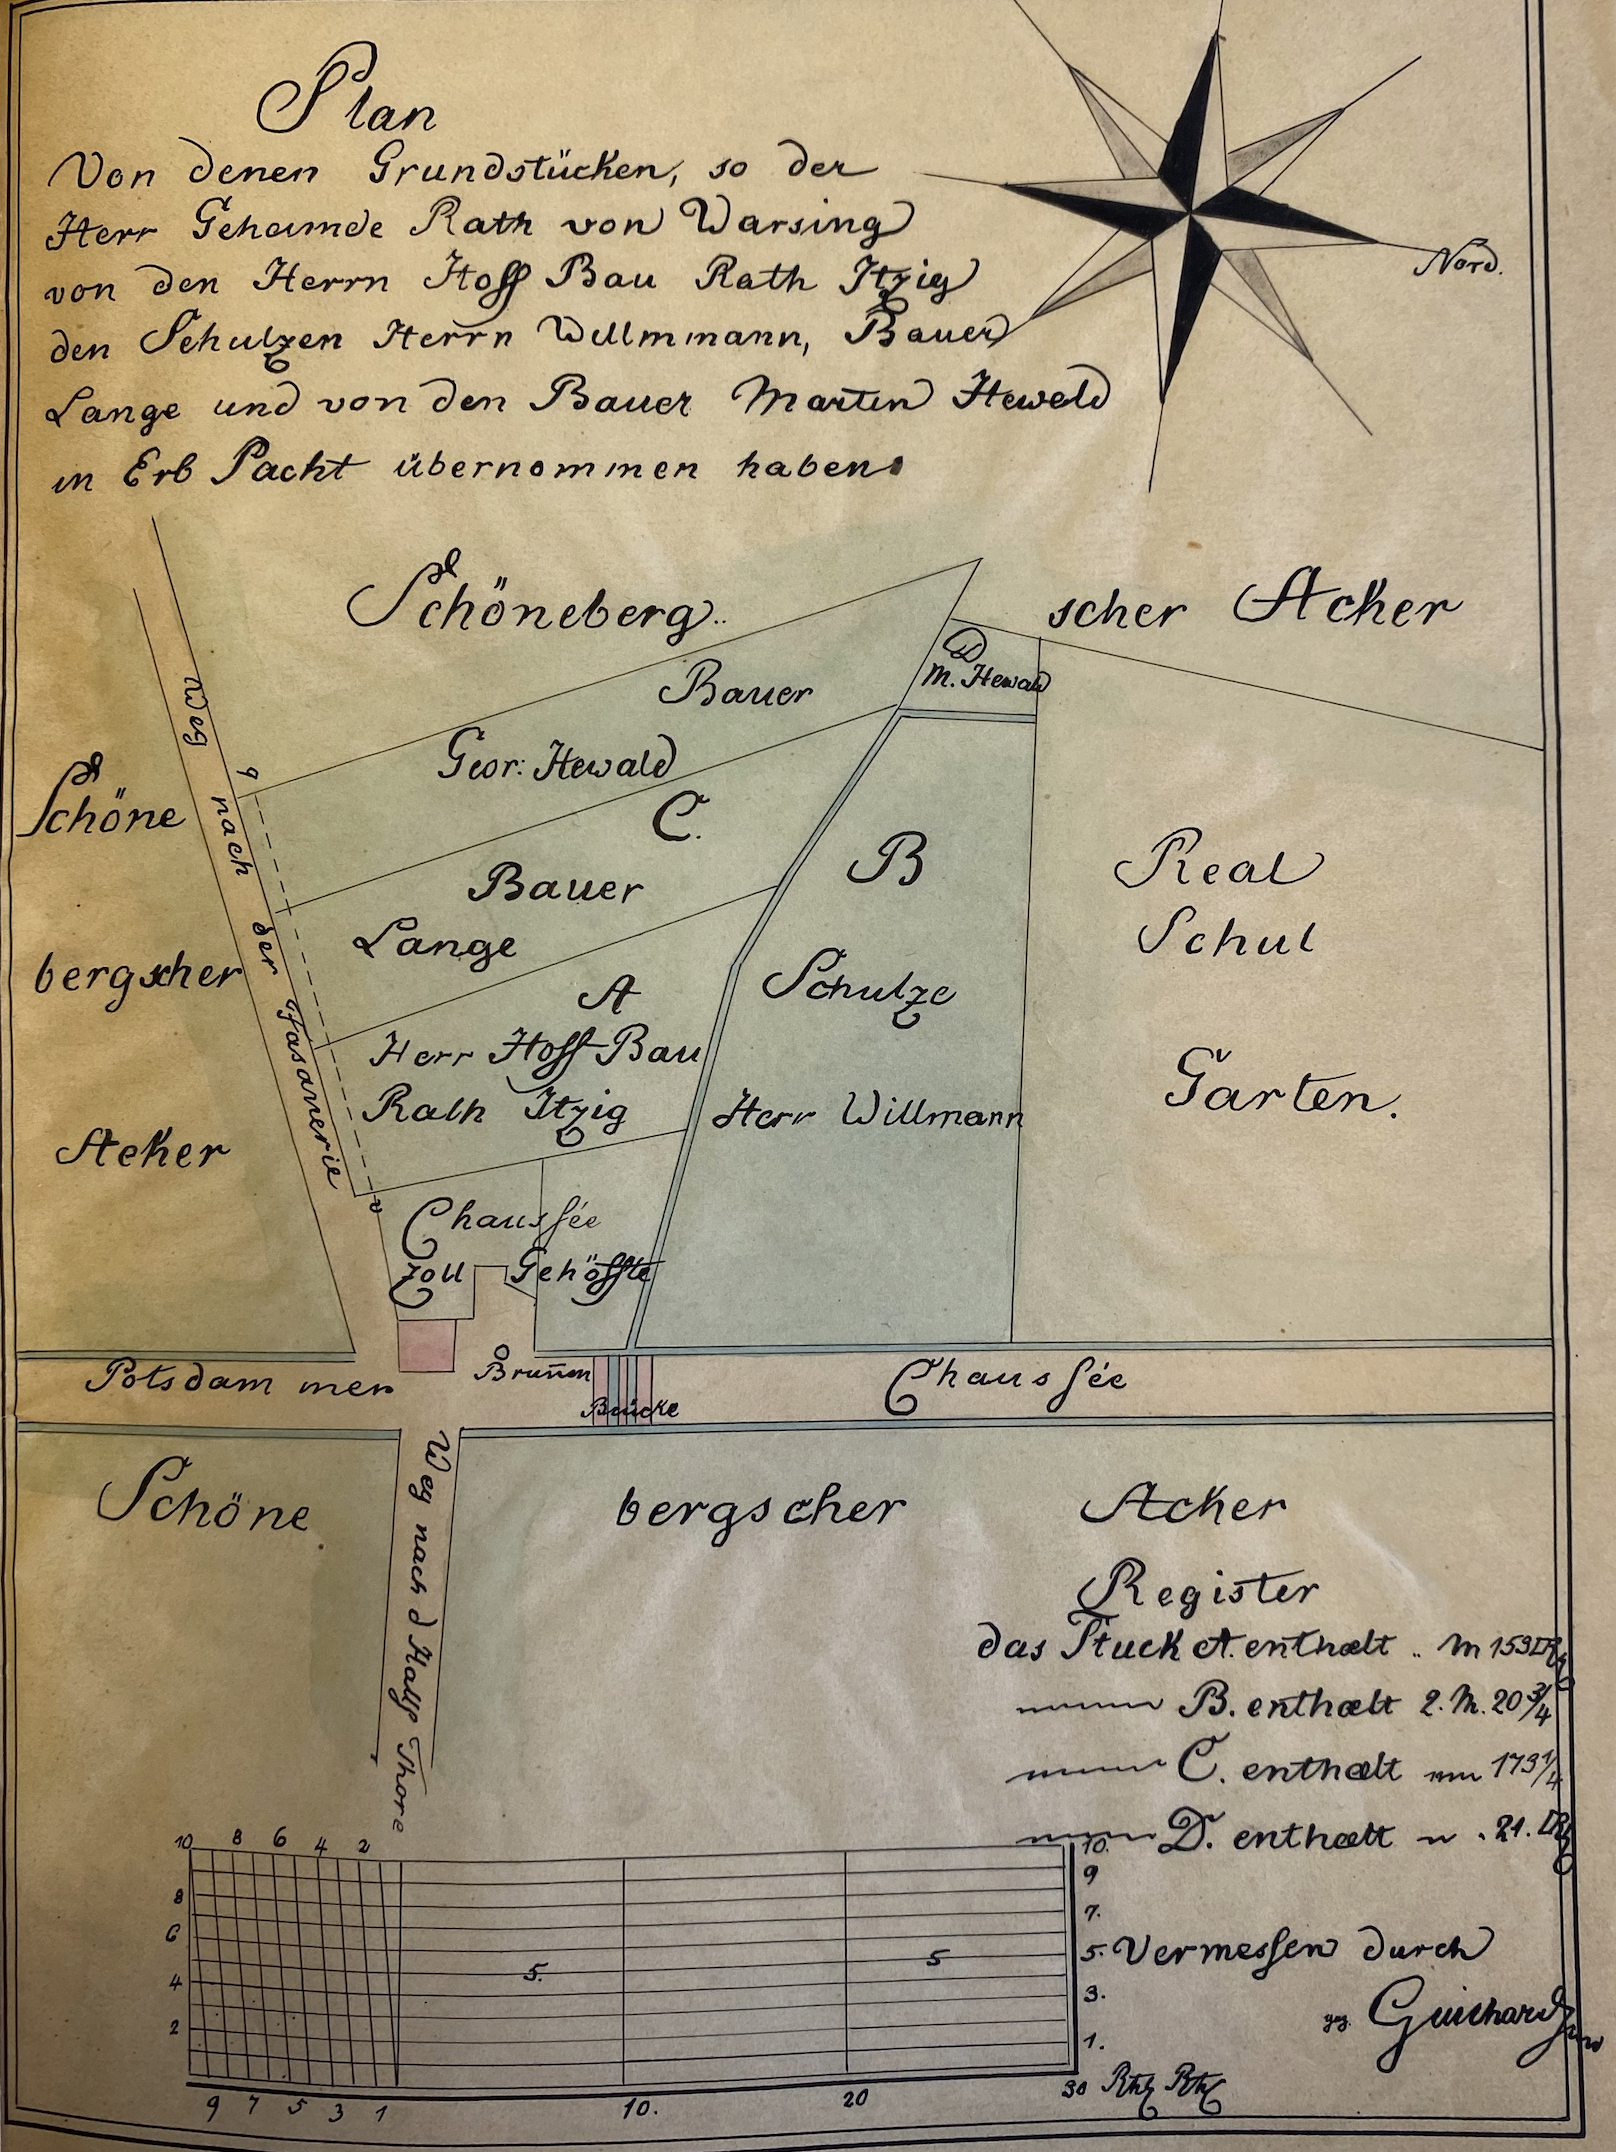 Plan
Von denen Grundstücken, so der
Herr Geheimde Rath von Warsing
von den Herrn Hoff Bau Rath Itzig
den Schulzen Herrn Willmmann, Bauer
Lange und von den Bauer Martin Hewald
in Erb Pacht übernommen haben.
Nord.
Schöneberg..
scher Acker
D
M. Hewald
Bauer
Geor: Hewald
C.
Bauer
Lange
A
Herr Hoff Bau
Rath Itzig
B
Schulze
Herr Willmann
Real
Schul
Garten.
Weg nach der Fasanerie
Schöne
bergscher
Acker
Chaussée
Zoll Gehöffte
Brunn
Brücke
Potsdam mer
Chaussée
Weg nach d Hallß Thore
Schöne
bergscher
Acker
Register
das Stuck A. enthælt .. M 153
B. enthælt 2. M. 20 3/4
C. enthælt 173 1/4
D. enthælt 21.
10 8 6 4 2
8
6
4
2
5.
5
10.
9
7.
5.
3.
1.
9 7 5 3 1
10.
20
30
Vermessen durch
gez. Guichard